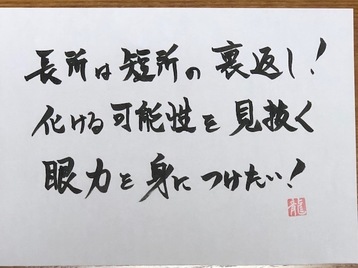 長所は短所の裏返し!
化ける可能性を見抜く
眼力を身につけたい!
龍